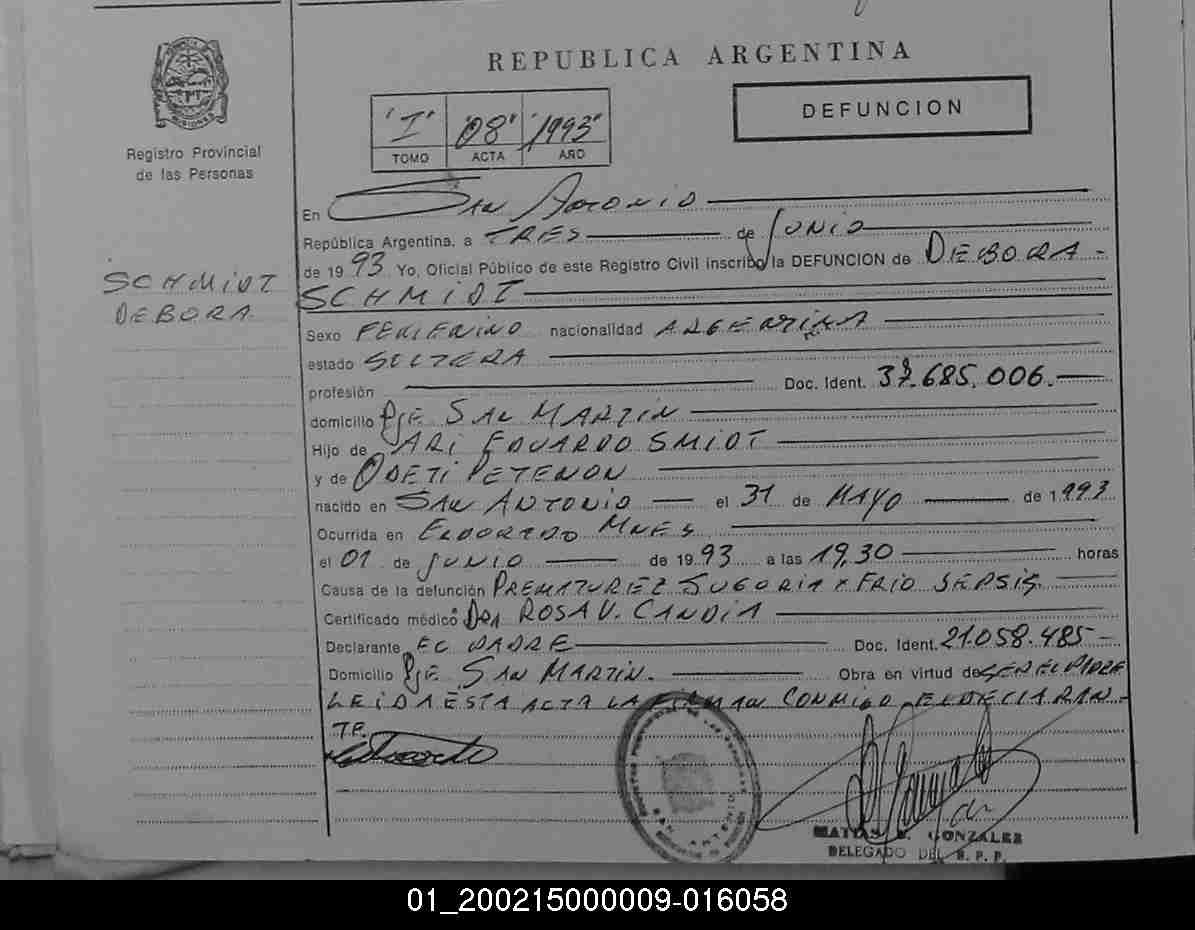 REPUBLICA ARGENTINA
DEFUNCION
"I" "08" "1993"
TOMO ACTA AÑO
Registro Provincial
de las Personas
SCHMIDT
DEBORA
En SAN ANTONIO
República Argentina, a TRES de JUNIO
de 1993 Yo, Oficial Público de este Registro Civil inscribo la DEFUNCION de DEBORA -
SCHMIDT
Sexo FEMENINO nacionalidad ARGENTINA
estado SOLTERA
profesión Doc. Ident. 685.006.
domicilio Pje SAN MARTIN
Hijo de ARI EDUARDO SMIDT
y de ODETI PETENON
nacido en SAN ANTONIO el 31 de MAYO de 1993
Ocurrida en ELDORADO MNES
el 01 de JUNIO de 1993 a las 19,30 horas
Causa de la defunción PREMATUREZ FRIO SEPSIS
Certificado médico Dra ROSA V. CANDIA
Declarante EL PADRE Doc. Ident. 21.058.485-
Domicilio Pje SAN MARTIN. Obra en virtud de SER EL PADRE
LEIDA ESTA ACTA LA FIRMAN CONMIGO EL DECLARAN-
TE.
MATIAS GONZALEZ
DELEGADO DEL R. P. P.
01_200215000009-016058